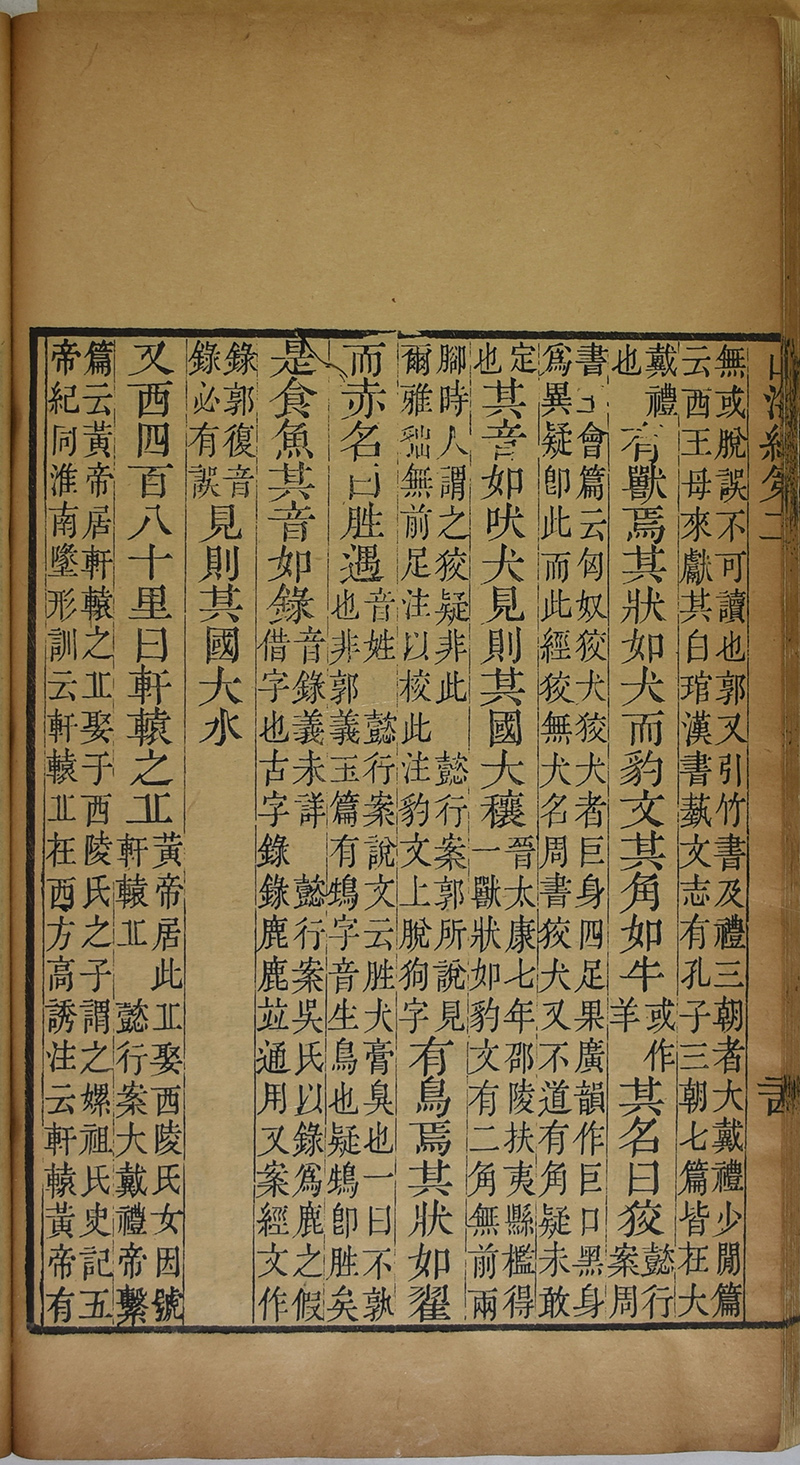 山海經第二
無或脫誤不可讀也郭又引竹書及禮三朝者大戴禮少閒篇
云西王母來獻其白琯漢書蓺文志有孔子三朝七篇皆在大
戴禮也有獸焉其狀如犬而豹文其角如牛或作羊其名曰狡懿行案周
書王會篇云匈奴狡犬狡犬者巨身四足果廣韻作巨口黑身
爲異疑卽此而此經狡無犬名周書狡犬又不道有角疑未敢
定也其音如吠犬見則其國大穰晉太康七年邵陵扶夷縣檻得一獸狀如豹文有二角無前兩
腳時人謂之狡疑非此 懿行案郭所說見爾雅貀無前足注以校此注豹文上脫狗字有鳥焉其狀如翟
而赤名曰胜遇音姓 懿行案說文云胜犬膏臭也一曰不孰也非郭義玉篇有鵿字音生鳥也疑鵿卽胜矣
是食魚其音如錄音錄義未詳 懿行案吳氏以錄爲鹿之假借字也古字錄錄鹿鹿竝通用又案經文作
錄郭復音錄必有誤見則其國大水
又西四百八十里曰軒轅之丘黃帝居此丘娶西陵氏女因號軒轅丘 懿行案大戴禮帝繫
篇云黃帝居軒轅之丘娶于西陵氏之子謂之嫘祖氏史記五
帝紀同淮南墬形訓云軒轅丘在西方高誘注云軒轅黃帝有